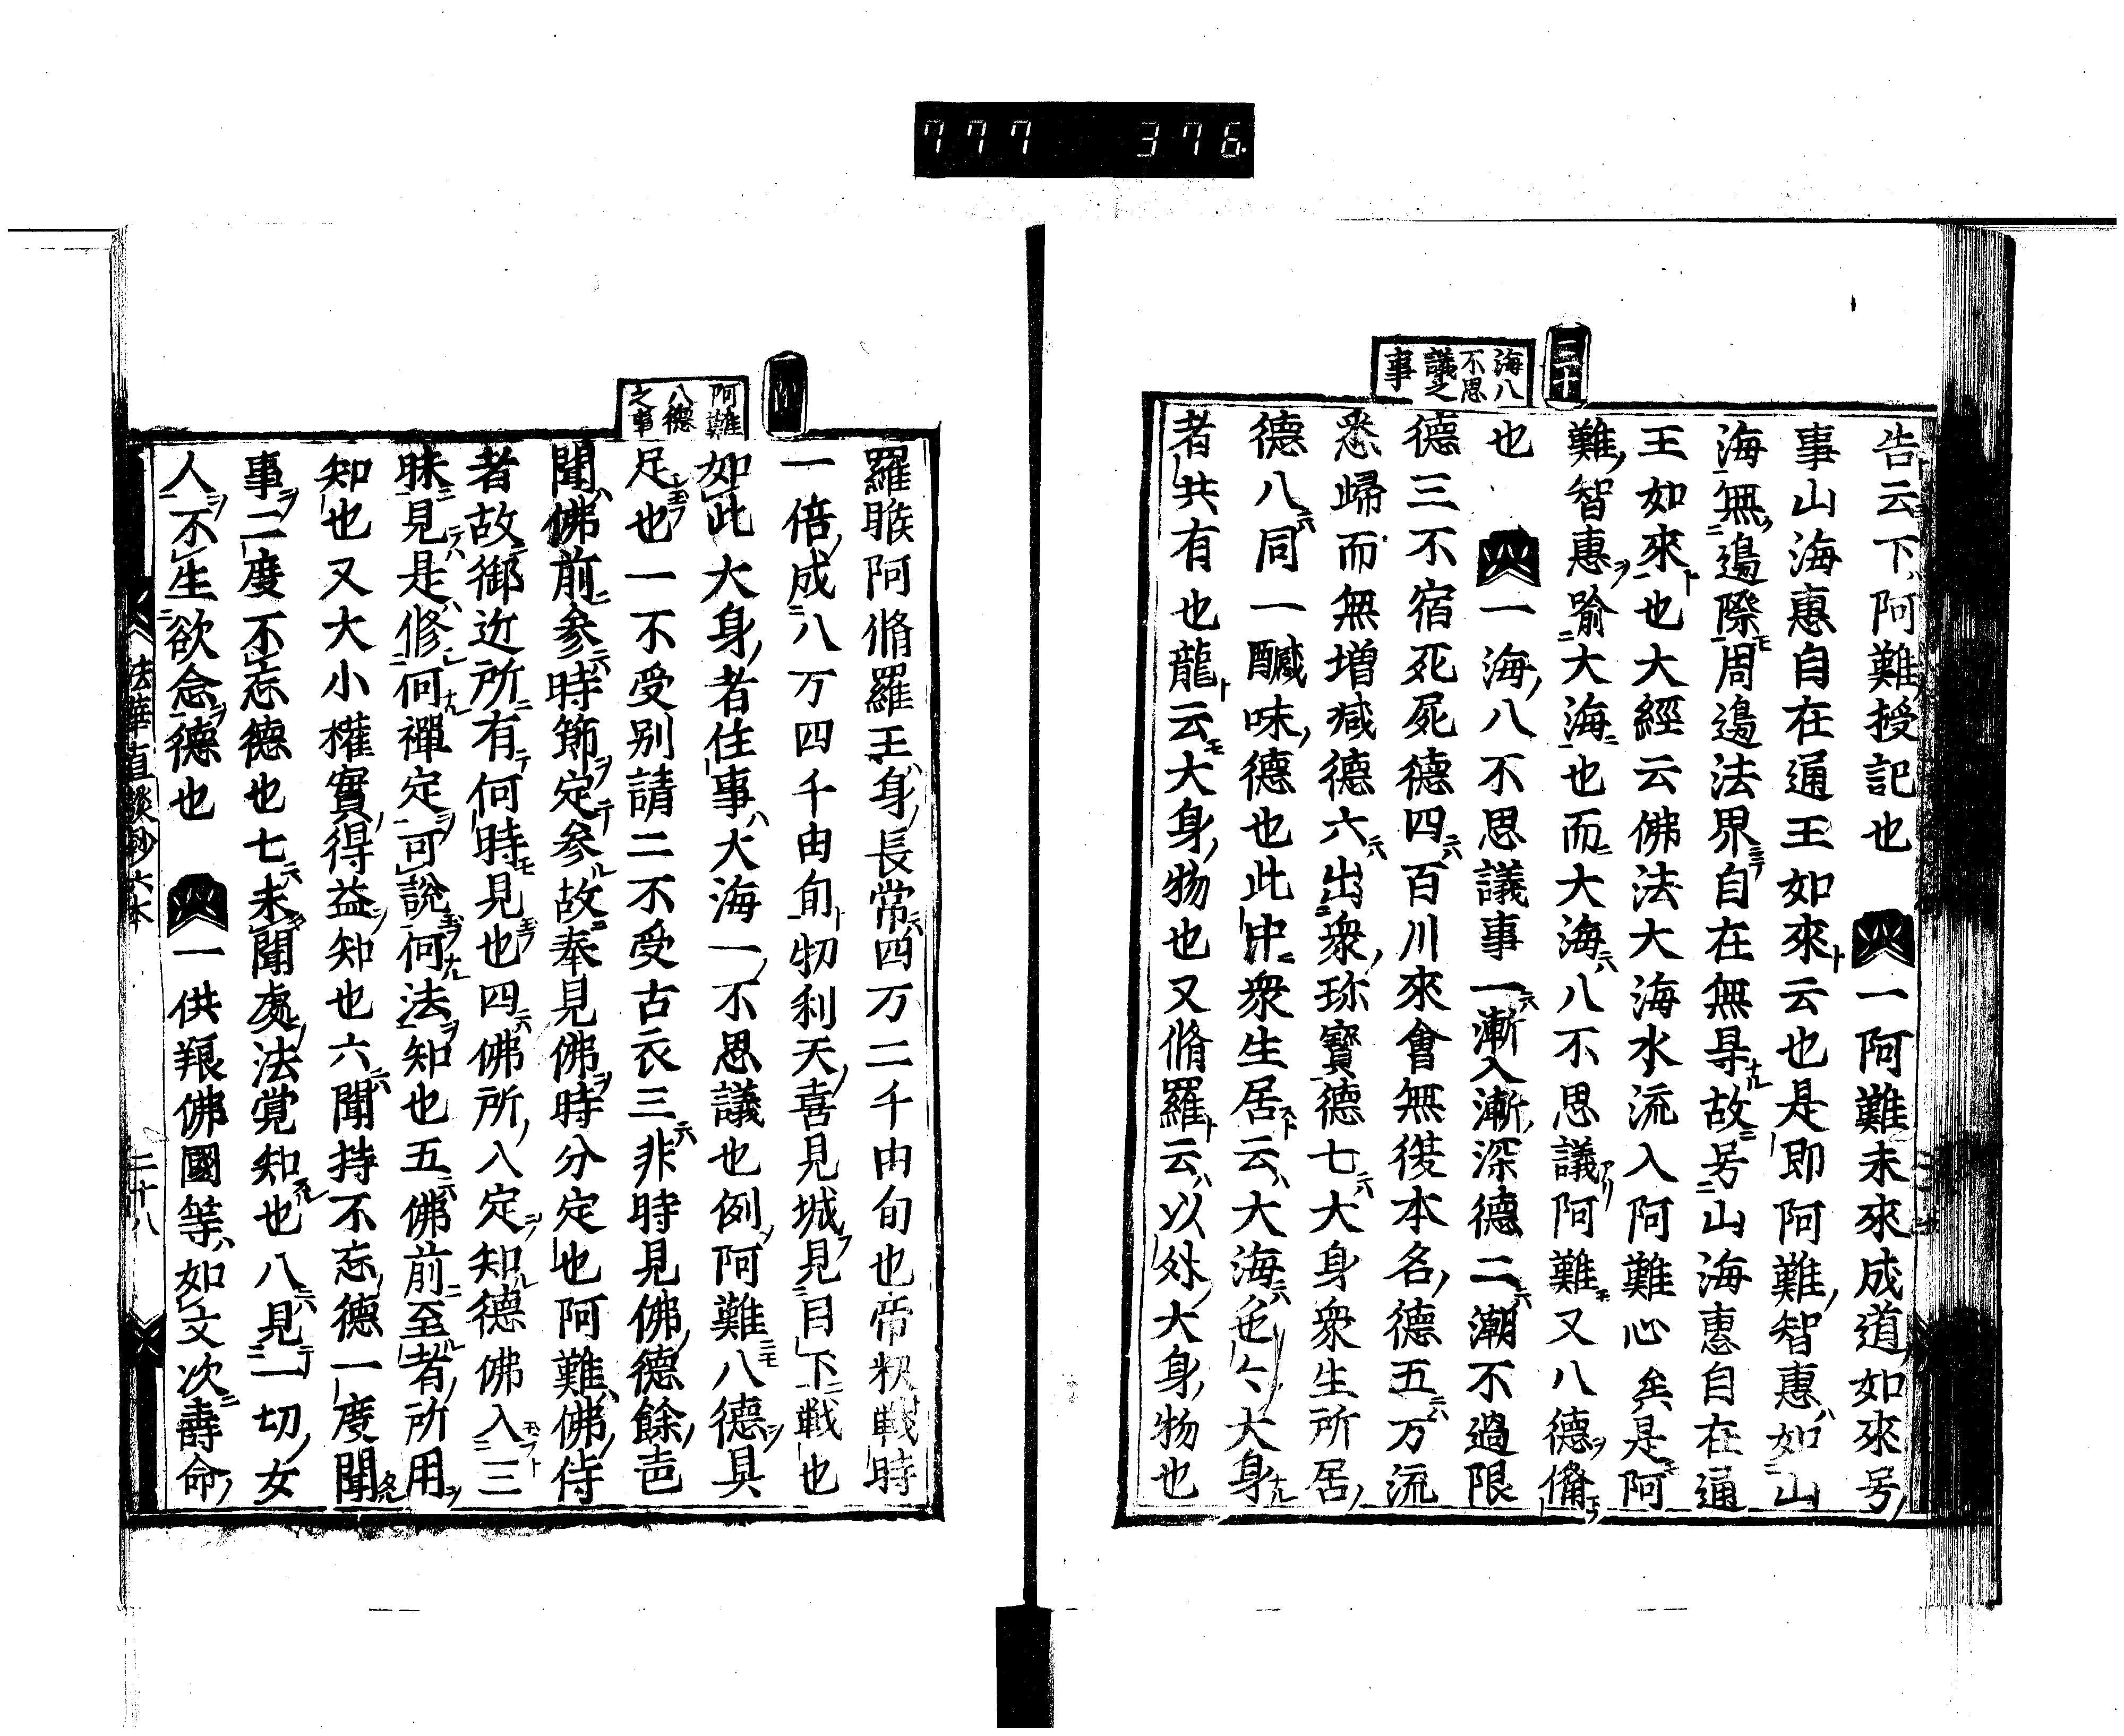 777 376
三十
海八
不思
議之
事
告云下阿難授記也 一阿難未來成道如來号
事山海惠自在通王如來云也是即阿難智惠如山
海無邊際周邊法界自在無导故号山海惠自在通
王如來也大經云佛法大海水流入阿難心矣是阿
難智惠喻大海也而大海八不思議阿難又八德備
也 一海八不思議事一漸入漸深德二潮不過限
德三不宿死屍德四百川來會無復本名德五万流
悉歸而無増减德六出衆珎寶德七大身衆生所居
德八同一醎味德也此中衆生居云大海也大身
者共有也龍云大身物也又脩羅云以外大身物也
阿難
八德
之事
羅睺阿脩羅王身長常四万二千由旬也帝釈戦時
一倍成八万四千由旬忉利天喜見城見目下戦也
如此大身者住事大海一不思議也例阿難八德具
足也一不受别請二不受古衣三非時見佛德餘
聞佛前參時節定參故奉見佛時分定也阿難佛侍
者故御近所有何時見也四佛所入定知德佛入三
昧見是修何禪定可說何法知也五佛前至者所用
知也又大小權實得益知也六聞持不忘德一度聞
事二度不忘德也七未聞處法覚知也八見一切女
人不生欲念德也 一供粮佛國等如文次壽命
法華直談鈔六本 二十八